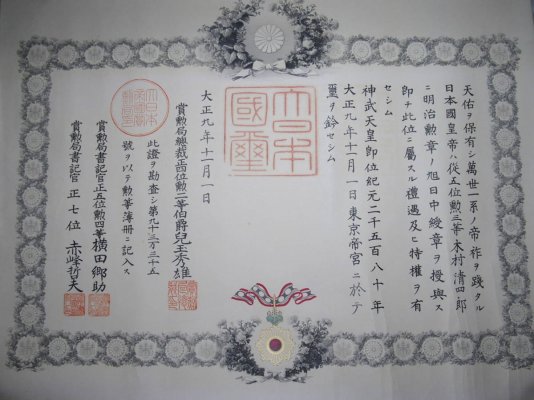 天佑ヲ保有シ萬世一系ノ帝祚ヲ踐タル
日本國皇帝ハ從五位勲三等木村清四郎
ニ明治勲章ノ旭日中綬章ヲ授與ス
即チ此位ニ屬スル禮遇及ヒ特權ヲ有
セシム
神武天皇即位紀元二千五百八十年
大正九年十一月一日東京帝宮ニ於テ
璽ヲ鈐セシム
大日本
國璽
大正九年十一月一日
賞勲局總裁正四位勲二等伯爵兒玉秀雄
此證ヲ勘査シ第九十三万三千五
號ヲ以テ勲等簿册ニ記入ス
賞勲局書記官正五位勲四等横田郷助
賞勲局書記官正七位赤峰哲夫